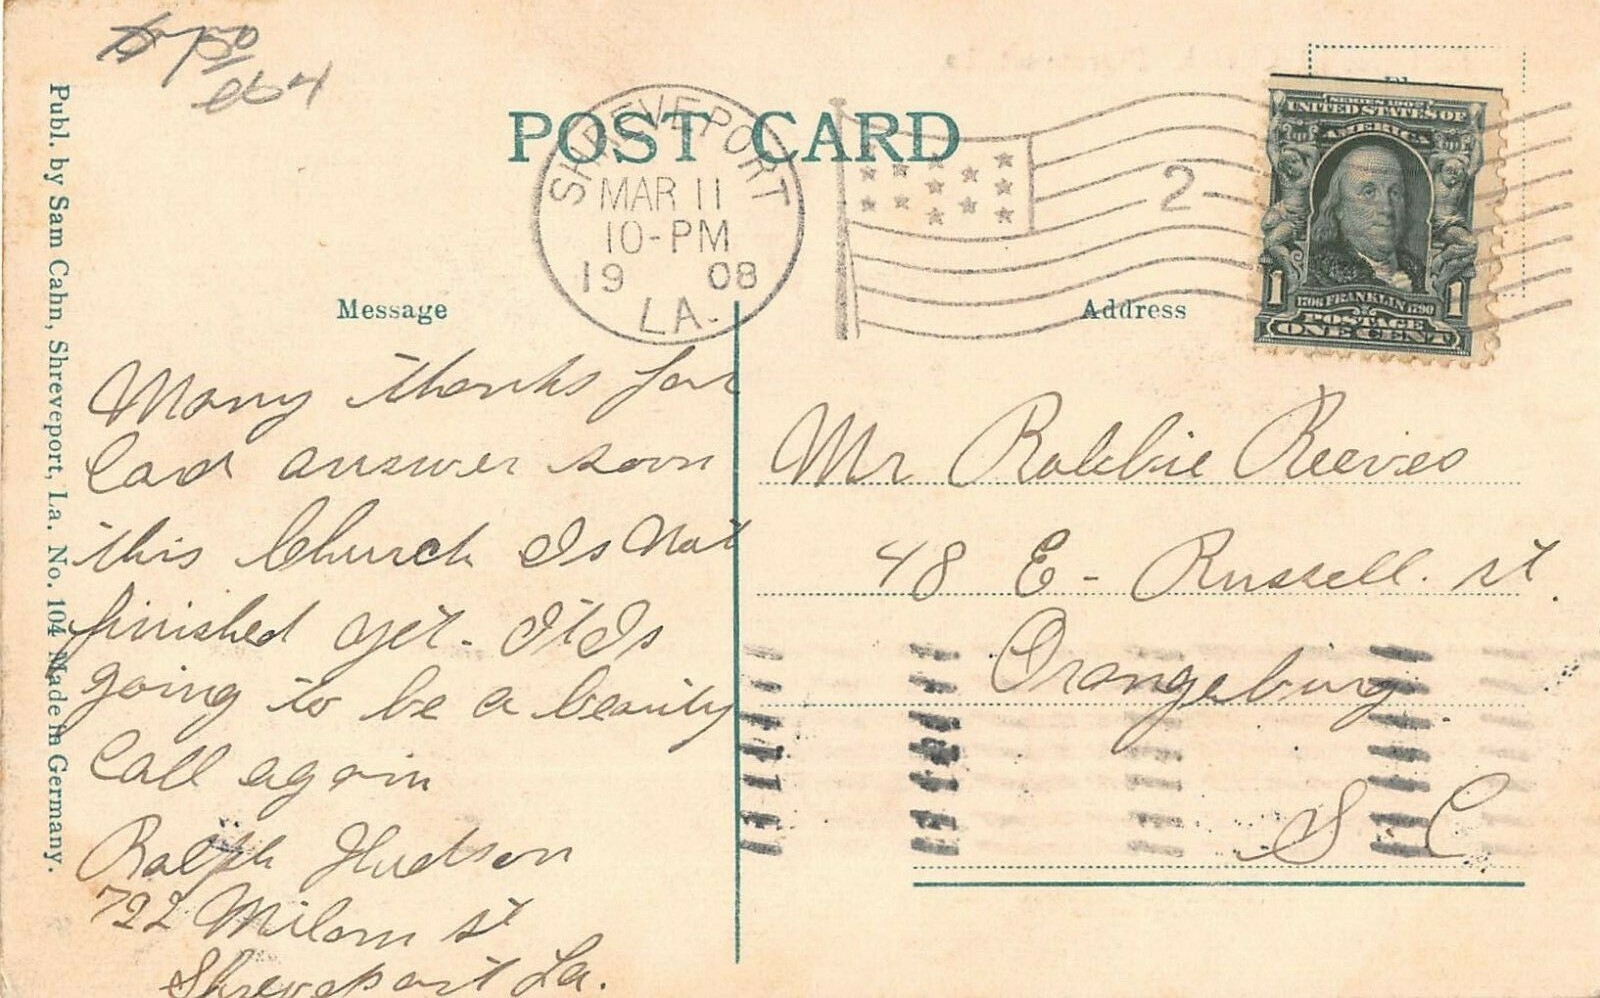 Publ. by Sam Cahn, Shreveport, La. No. 104 Made in Germany.
POST CARD
SHREVEPORT
MAR 11
10-PM
19 08
LA.
2
SERIES 1902
UNITED STATES OF
AMERICA
1 1706 FRANKLIN 1790 1
POSTAGE
ONE CENT
Message
Many thanks for
Card answer soon
this Church Is Not
finished yet - It Is
going to be a beauity
Call again
Ralph Hudson
722 Milam st
Shreveport La.
Address
Mr Robbie Reeves
48 E - Russell. st.
Orangeburg
S C